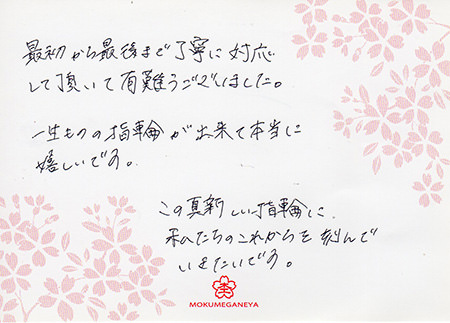 最初から最後まで丁寧に対応
して頂いて有難うございました。
一生ものの指輪が出来て本当に
嬉しいです。
この真新しい指輪に、
私たちのこれからを刻んで
いきたいです。
杢
MOKUMEGANEYA